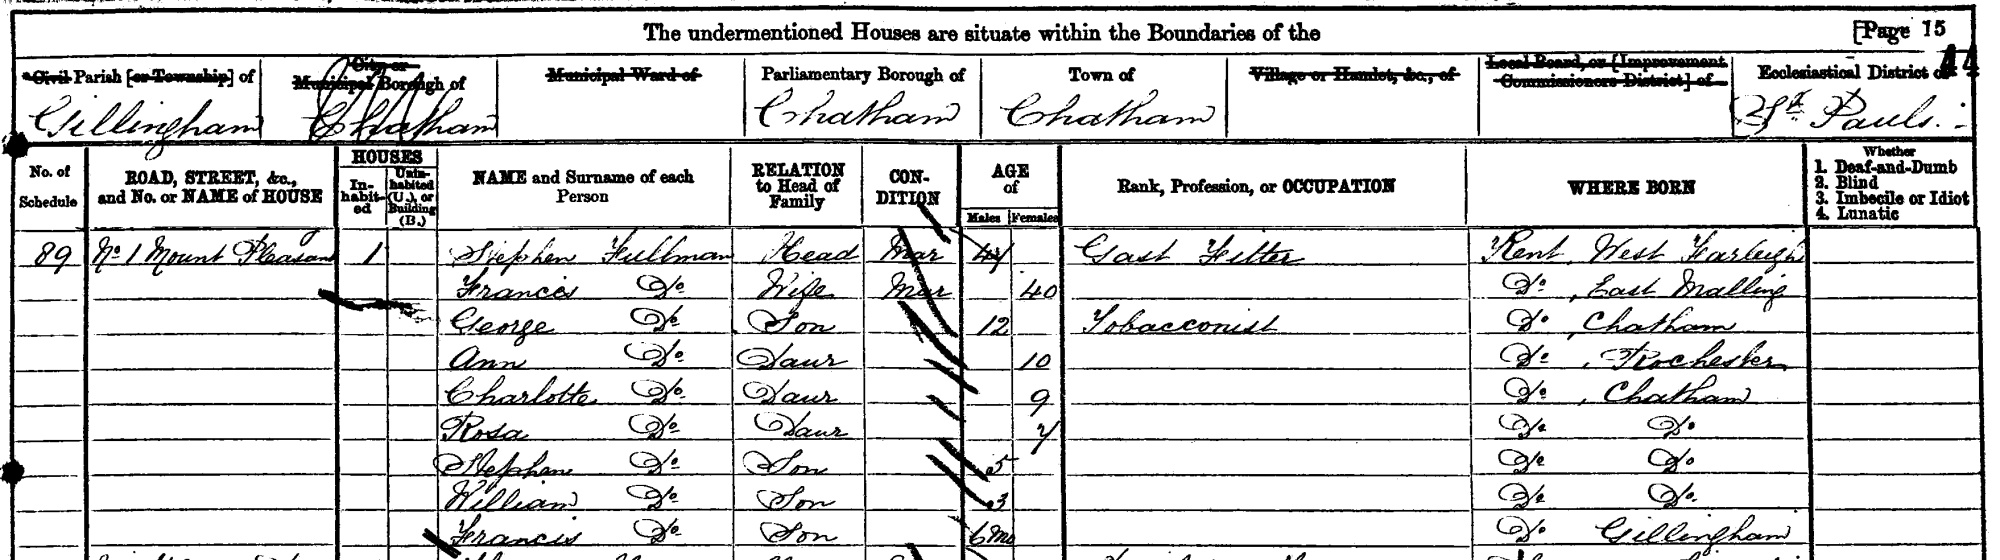 The undermentioned Houses are situate within the Boundaries of the [Page 15
44
Civil Parish [or Township] of City or Municipal Borough of Municipal Ward of Parliamentary Borough of Town of Village or Hamlet, &c., of Local Board, or [Improvement Commissioners District] of Ecclesiastical District of
Gillingham Chatham Chatham Chatham St. Pauls.
No. of Schedule ROAD, STREET, &c., and No. or NAME of HOUSE HOUSES Inhabited Uninhabited (U.), or Building (B.) NAME and Surname of each Person RELATION to Head of Family CONDITION AGE of Males Females Rank, Profession, or OCCUPATION WHERE BORN Whether 1. Deaf-and-Dumb 2. Blind 3. Imbecile or Idiot 4. Lunatic
89 No. 1 Mount Pleasant 1 Stephen Fullman Head Mar 44 Gast Fitter Kent, West Farleigh
Francis Do. Wife Mar 40 Do., East Malling
George Do. Son 12 Tobacconist Do., Chatham
Ann Do. Daur 10 Do., Rochester
Charlotte Do. Daur 9 Do., Chatham
Rosa Do. Daur 7 Do. Do.
Stephen Do. Son 5 Do. Do.
William Do. Son 3 Do. Do.
Francis Do. Son 6 Mo Do. Gillingham